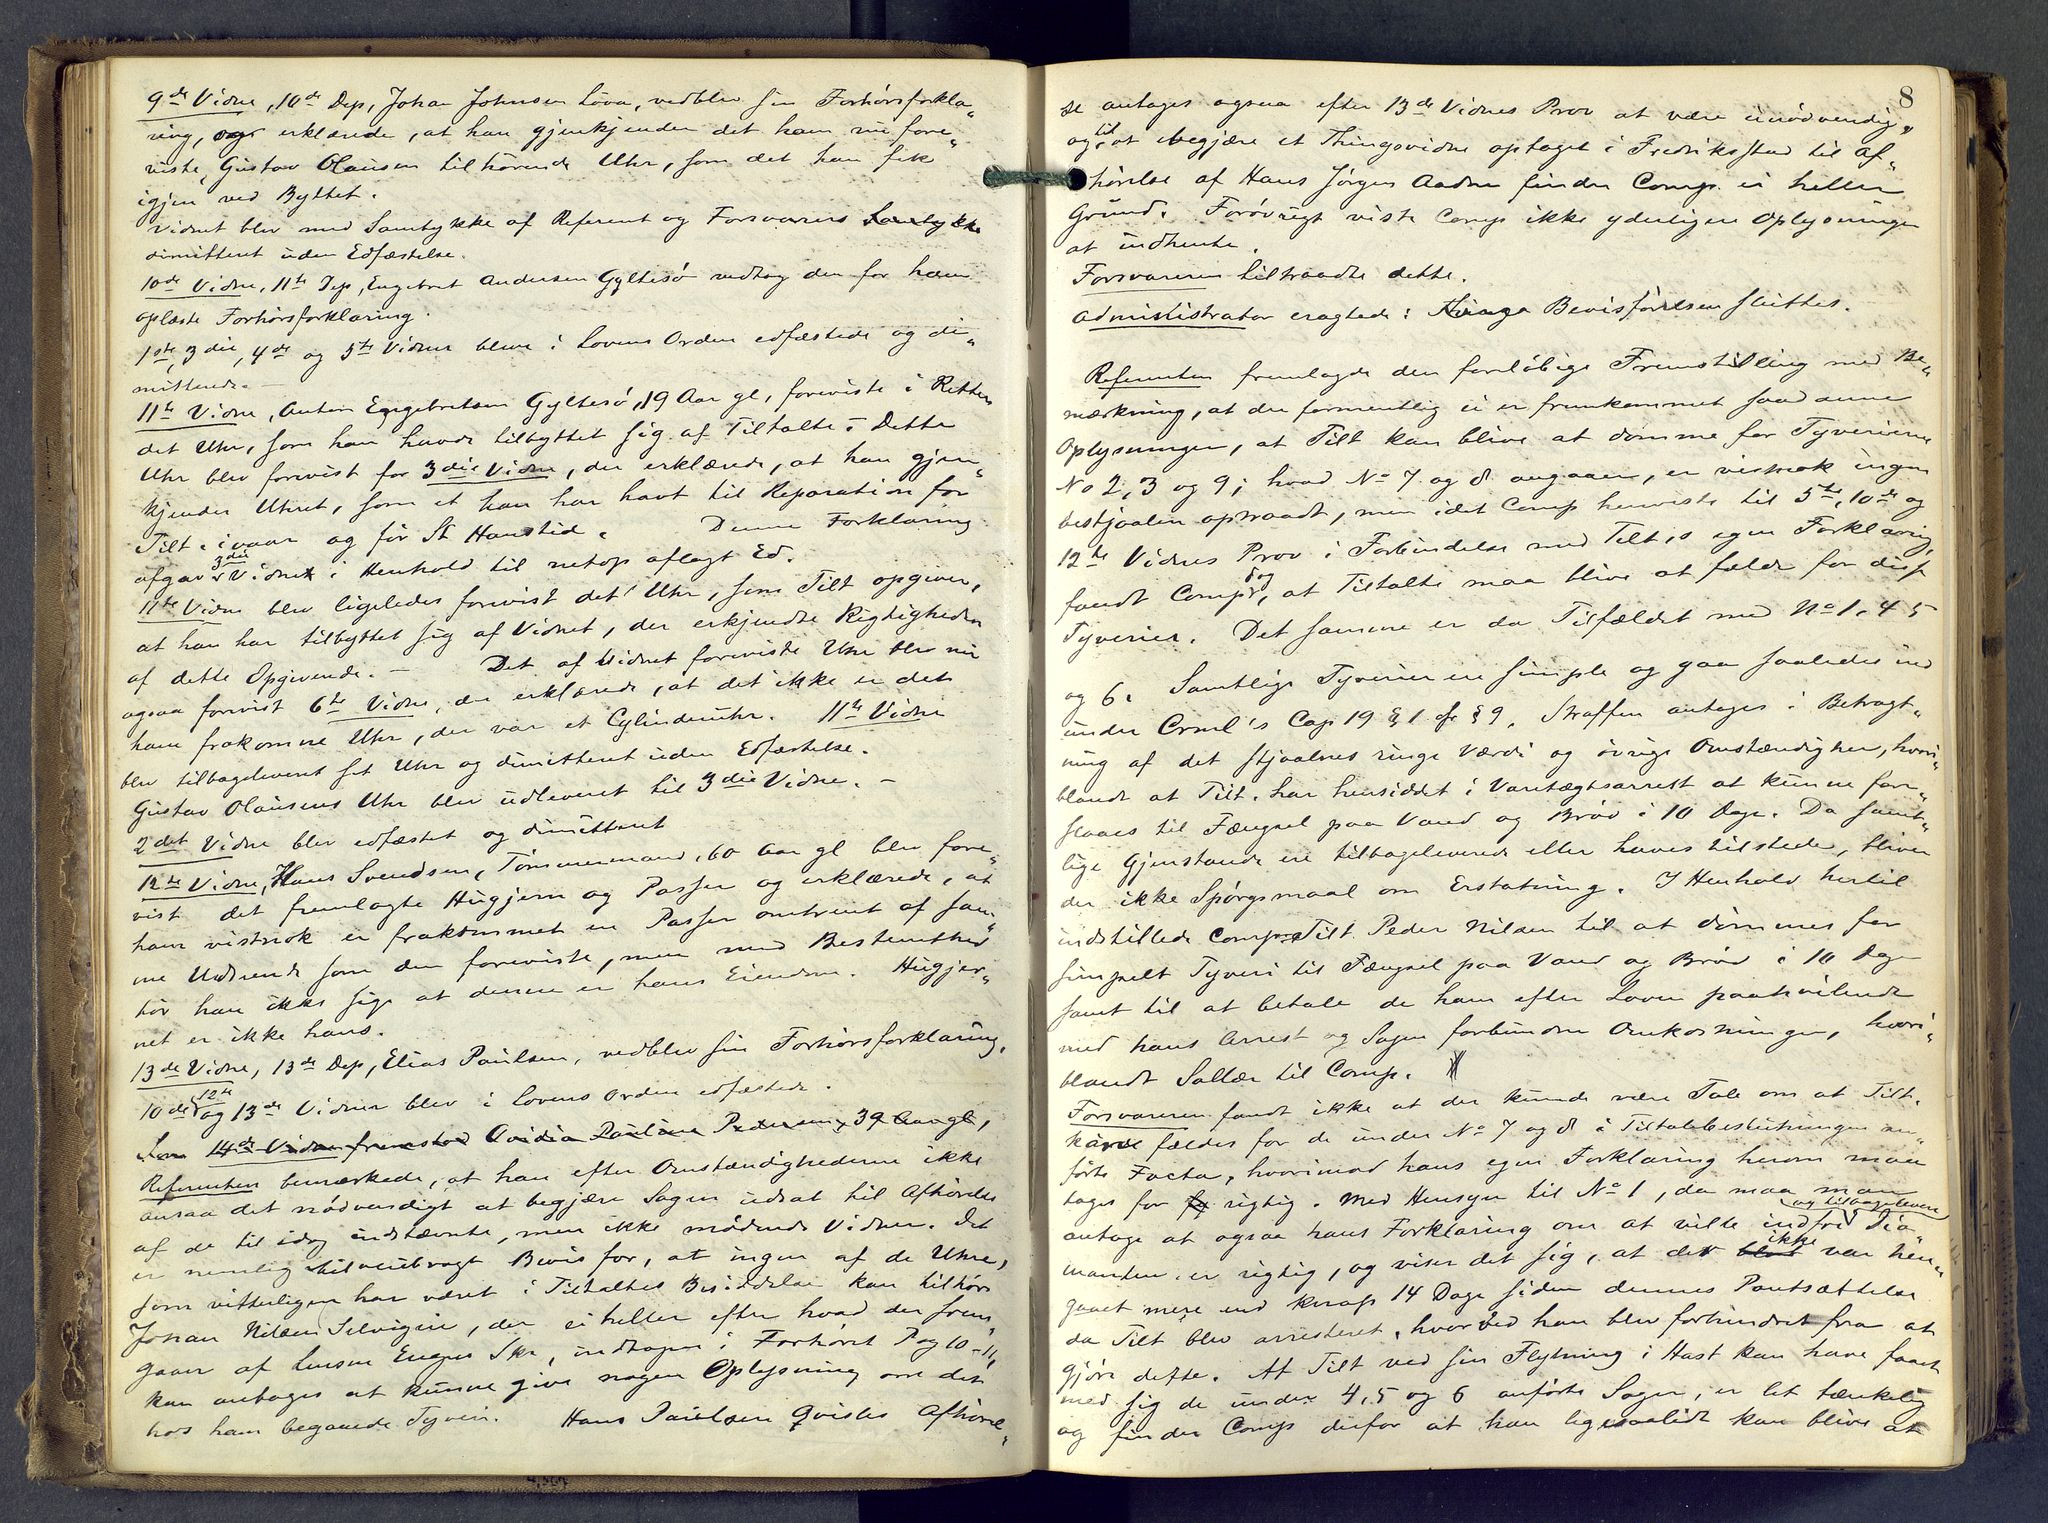 9de Vidne, 10de Dep, Johan Johnsen Löva, vedblev sin Forhörsforkla„
ring, og erklærede, at han gjenkjender det ham nu fore„
viste, Gustav Olausen tilhörende Uhr, som det han fik
igjen ved Byttet.
Vidnet blev med Samtykke af Referent og Forsvarers Samtykke
dimitteret uden Edfæstelse.
10de Vidne, 11te Dep, Engebret Andersen Gyltesö vedtog den for ham
oplæste Forhörsforklaring.
1ste, 3die, 4de og 5te Vidner bleve i Lovens Orden edfæstede og di„
mitterede. –
11te Vidne, Anton Engebretsen Gyltesö, 19 Aar gl, foreviste i Retten
det Uhr, som han havde tilbyttet sig af Tiltalte. – Dette
Uhr blev forevist for 3die Vidne, der erklærede, at han gjen„
kjender Uhret, som et han har havt til Reparation for
Tilt. ivaar og för St Hanstid. Denne Forklaring
afgav 3die Vidne i Henhold til netop aflagt Ed.
11te Vidne blev ligeledes forevist det Uhr, som Tilt opgiver,
at han har tilbyttet sig af Vidnet, der erkjendte Rigtigheden
af dette Opgivende. – Det af Vidnet foreviste Uhr blev nu
ogsaa forevist 6te Vidne, der erklærede, at det ikke er det
ham frakomne Uhr, der var et Cylinderuhr. 11te Vidne
blev tilbageleveret sit Uhr og dimitteret uden Edfæstelse.
Gustav Olausens Uhr blev udleveret til 3die Vidne. –
2det Vidne blev edfæstet og dimitteret
12te Vidne, Hans Svendsen, Tömmermand, 60 Aar gl blev fore„
vist det fremlagte Hugjern og Passer og erklærede, at
ham vistnok er frakommet en Passer omtrent af sam„
me Udseende som den foreviste, men med Bestemthed
tör han ikke sige at denne er hans Eiendom. Hugjer„
net er ikke hans.
13de Vidne, 13de Dep, Elias Paulsen, vedblev sin Forhörsforklaring.
10de, 12te og 13de Vidner blev i Lovens Orden edfæstede.
Som 14de Vidne fremstod Ovidia Pauline Pedersen, 39 Aar gl,
Referenten bemærkede, at han efter Omstændighederne ikke
ansaa det nödvendigt at begjære Sagen udsat til Afhörelse
af de til idag indstævnte, men ikke mödende Vidner. Det
er nemlig tilveiebragt Bevis for, at ingen af de Uhre,
som vitterligen har været i Tiltaltes Besiddelse kan tilhöre
Johan Nilsen Selvigen, der ei heller efter hvad der frem„
gaar af Lensm Enges Skr, indtagen i Forhöret Pag 10–11,
kan antages at kunne give nogen Oplysning om det
hos ham begaaede Tyveri. Hans Paulsen Qvists Afhörel„
8
se antages ogsaa efter 13de Vidnes Prov at være unödvendig,
og til at begjære et Thingsvidne optaget i Fredriksstad til Af„
hörelse af Hans Jörgen Aadne finder Comp. ei heller
Grund. Forövrigt viste Comp ikke yderligere Oplysninger
at indhente.
Forsvareren tiltraadte dette.
Administrator eragtede: Bevisförelsen sluttes.
Referenten fremlagde den foreløbige Fremstilling med Be„
mærkning, at der formentlig ei er fremkommet saadanne
Oplysninger, at Tilt kan blive at dömme for Tyverierne
No 2, 3 og 9; hvad No 7 og 8 angaaer, er vistnok ingen
bestjaalen optraadt, men idet Comp henviste til 5te, 10de og
12te Vidnes Prov i Forbindelse med Tilt.s egen Forklaring,
fandt Comp dog, at Tiltalte maa blive at fælde for disse
Tyverier. Det samme er da Tilfældet med No 1, 4, 5
og 6. Samtlige Tyverier ere simple og gaa saaledes ind
under Crml's Cap 19 § 1 cfr § 9. Straffen antages i Betragt„
ning af det stjaalnes ringe Værdi og övrige Omstændigher, hvori„
blandt at Tilt. har hensiddet i Varetægtsarrest at kunne fore„
slaaes til Fængsel paa Vand og Bröd i 10 Dage. Da samt„
lige Gjenstande ere tilbageleverede eller haves tilstede, bliver
der ikke Spörgsmaal om Erstatning. I Henhold hertil
indstillede Comp Tilt Peder Nilsen til at dömmes for
simpelt Tyveri til Fængsel paa Vand og Bröd i 10 Dage
samt til at betale de ham efter Loven paahvilende
med hans Arrest og Sagen forbundne Omkostninger, hvori„
blandt Sallær til Comp.
Forsvareren fandt ikke at der kunde være Tale om at Tilt.
kunde fældes for de under No 7 og 8 i Tiltalebeslutningen an„
förte Facta, hvorimod hans egen Forklaring herom maa
tages for rigtig. Med Hensyn til No 1, da maa man
antage at ogsaa hans Forklaring om at ville indfri og tilbagelevere Dia„
manten er rigtig, og viser det sig, at der ikke var hen„
gaaet mere end knap 14 Dage siden dennes Pantsættelse
da Tilt blev arresteret, hvorved han blev forhindret fra at
gjöre dette. At Tilt ved sin Flytning i Hast kan have faaet
med sig de under 4, 5 og 6 anförte Sager, er let tænkelig
og finder Comp derfor at han ligesaalidt kan blive at